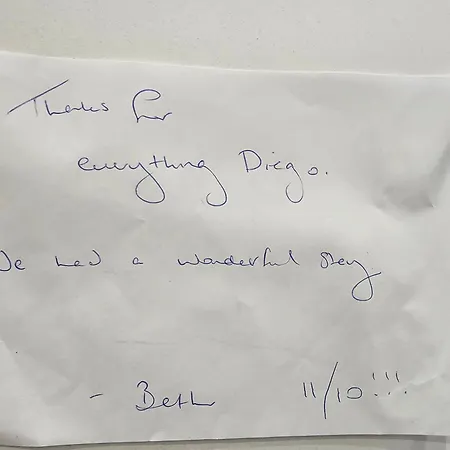 Thanks for
everything Diego.
We had a wonderful stay
- Beth 11/10!!!